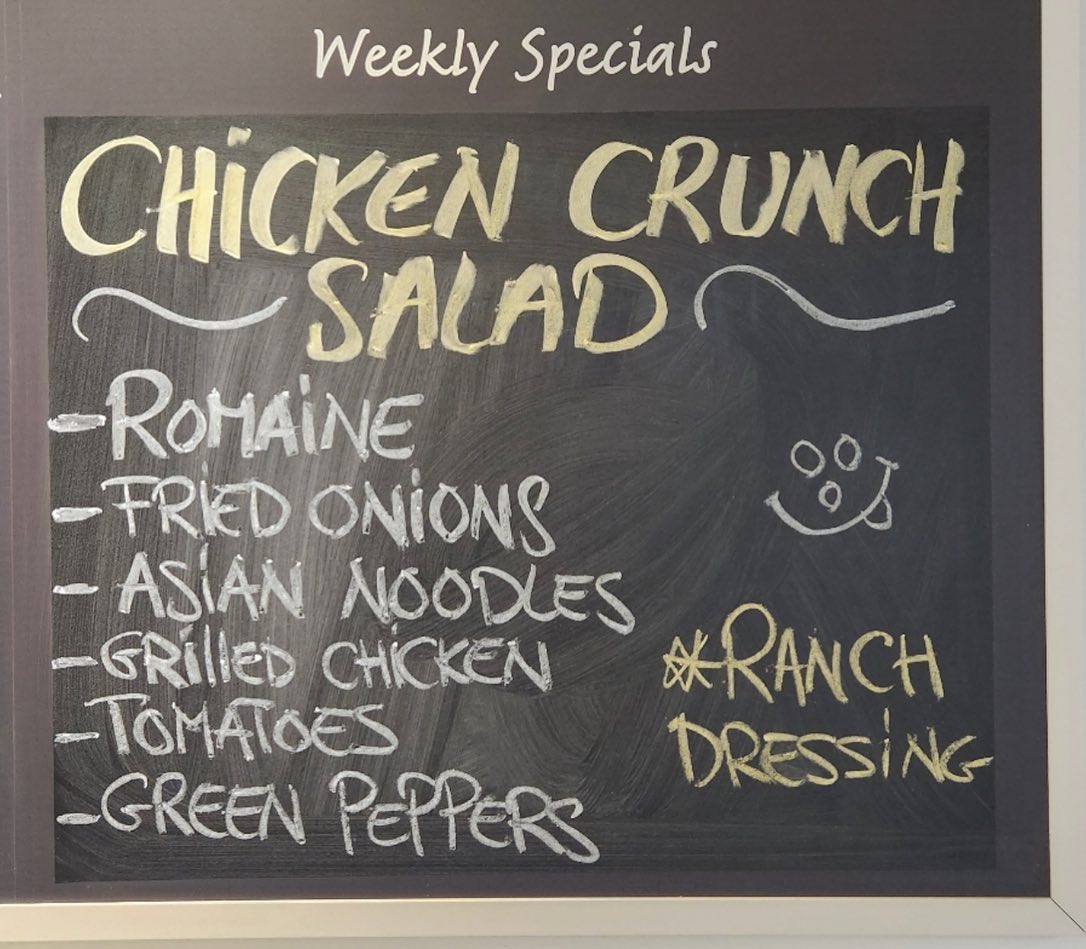 Weekly Specials
CHiCKEN CRUNCH
SALAD
- ROMAiNE
- FRiED ONiONS
- ASiAN NOODLES
- GRilled CHiCKEN
- TOMATOES
- GREEN PEPPERS
*RANCH
DRESSiNG